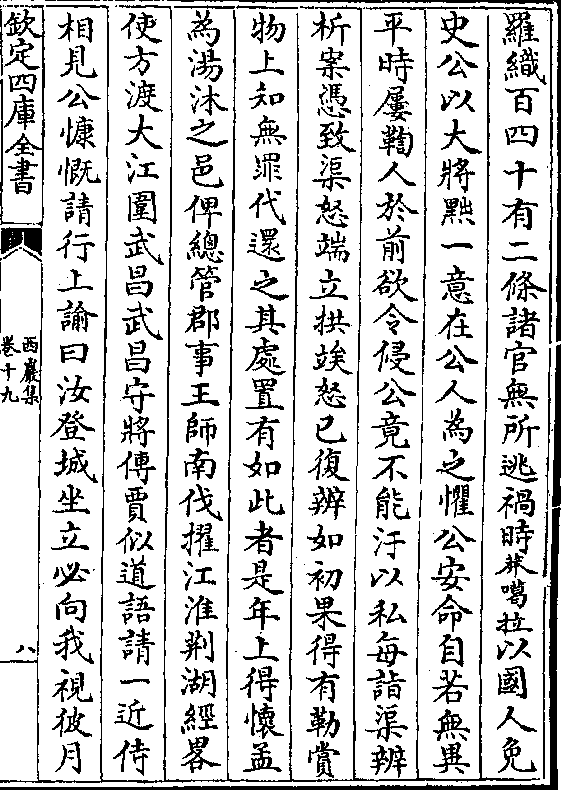 羅織百四十有二條諸官無所逃禍時莽噶拉以國人免
史公以大將㸃一意在公人為之懼公安命自若無異
平時屢鞫人於前欲令侵公竟不能汙以私每詣渠辨
析案憑致渠怒端立拱竢怒已復辨如初果得有勒賞
物上知無罪代還之其處置有如此者是年上得懷孟
為湯沐之邑俾總管郡事王師南伐擢江淮荆湖經畧
使方渡大江圍武昌武昌守將傅賈似道語請一近侍
相見公慷慨請行上諭曰汝登城坐立必向我視彼月
欽定四庫全書
西巖集
卷十九
八